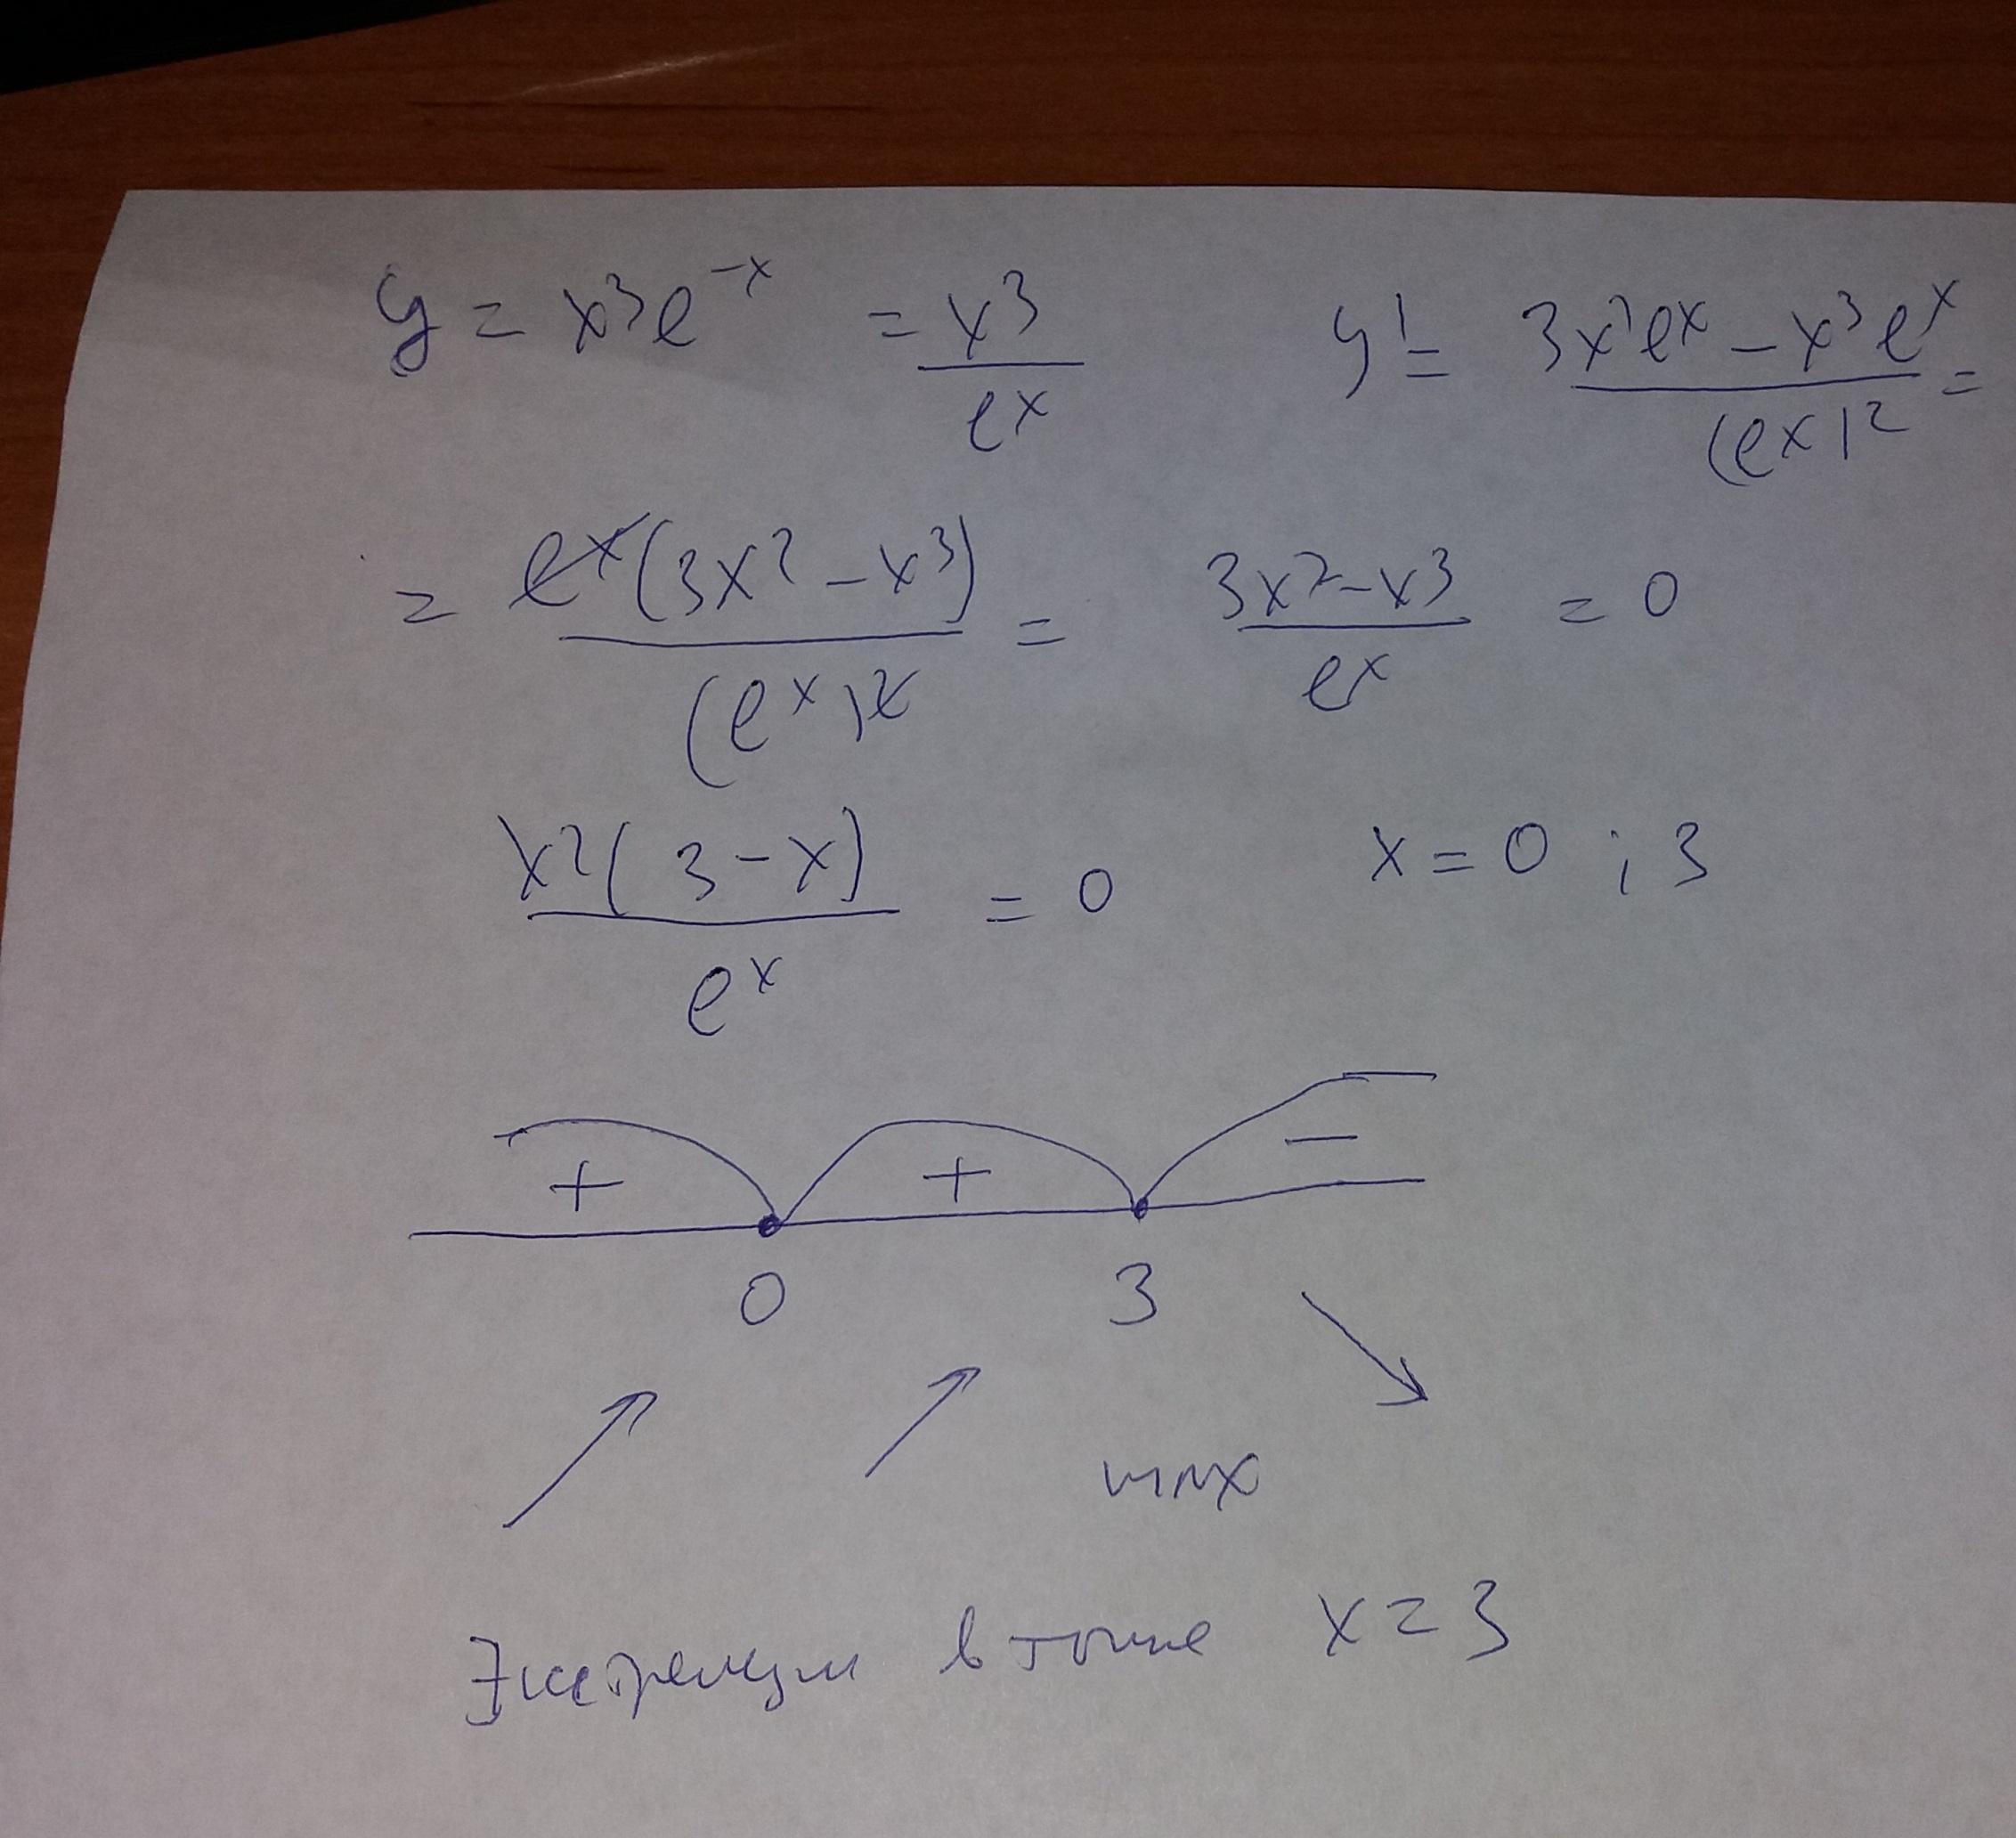 y = x³e⁻ˣ = x³/eˣ    y' = (3x²eˣ - x³eˣ)/(eˣ)² =
= eˣ(3x² - x³)/(eˣ)² = (3x² - x³)/eˣ = 0
x²(3 - x)/eˣ = 0    x = 0 ; 3
+ + -
0 3
max
Экстремум в точке x = 3